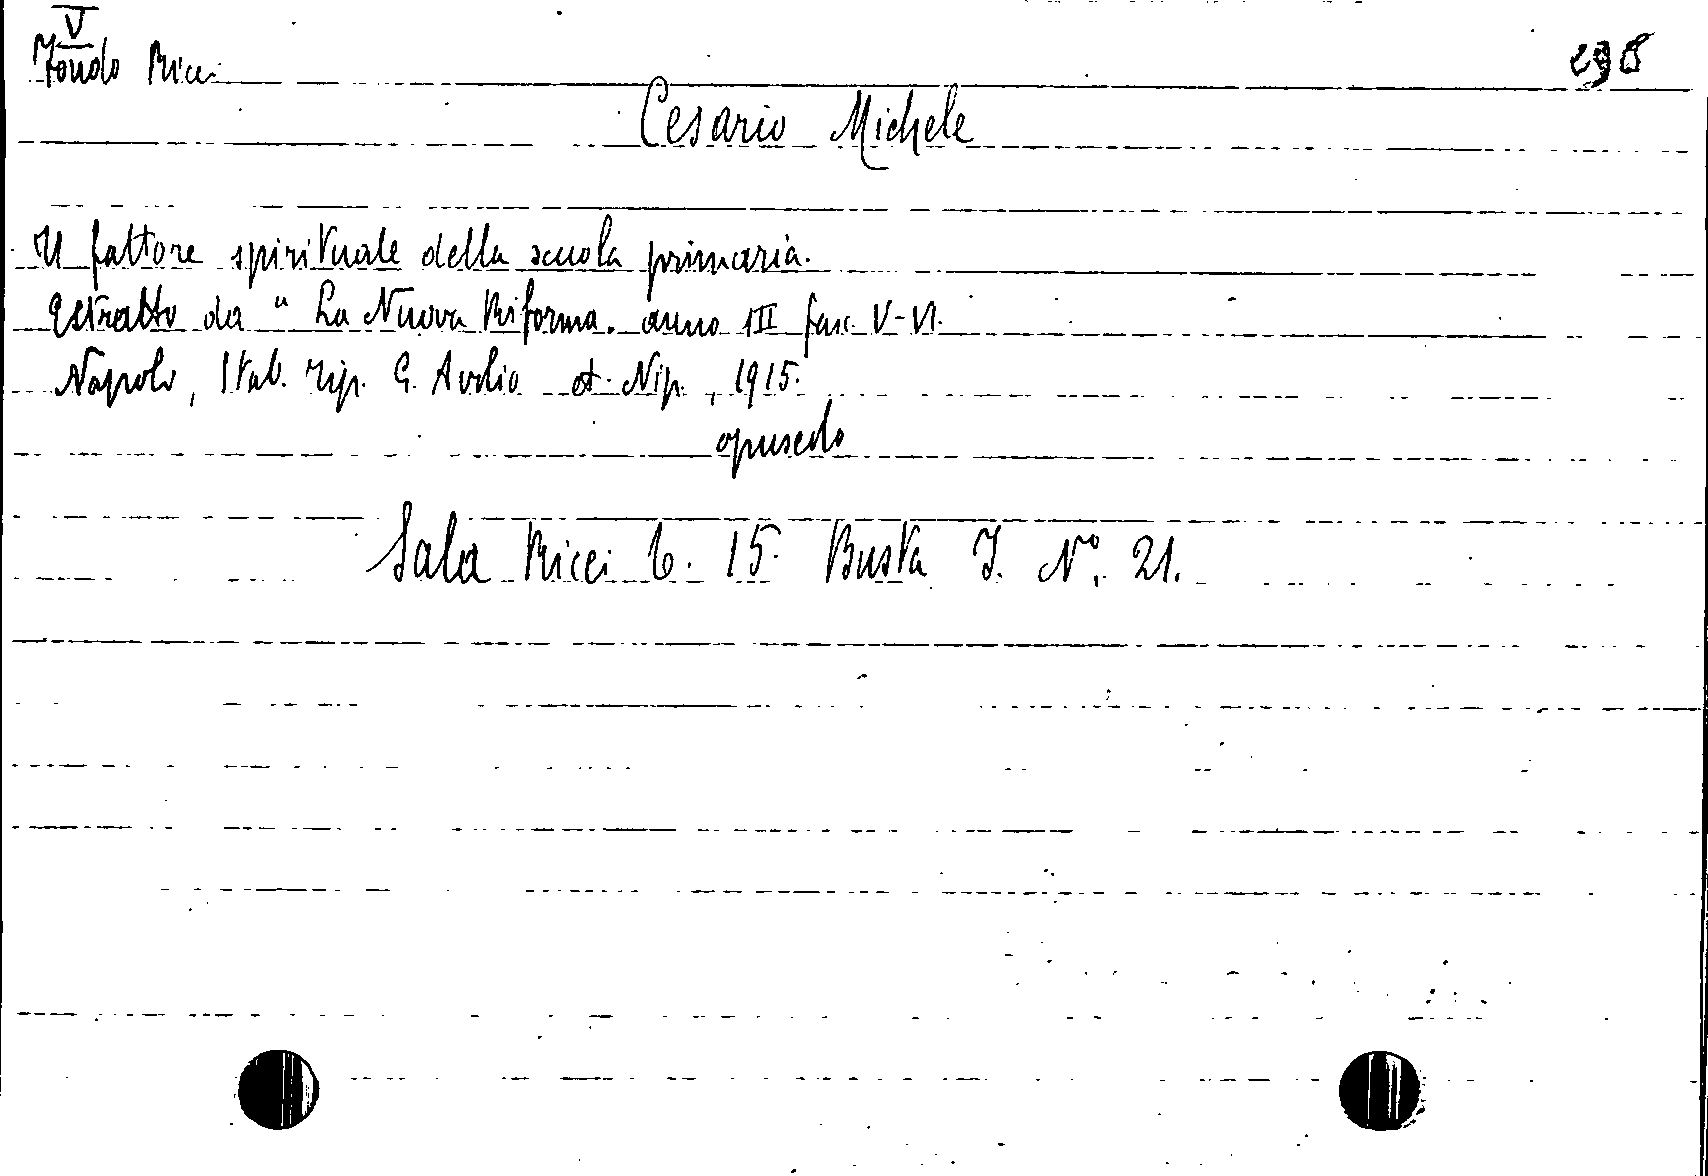 V
Fondo Ricci
298
Cesario Michele
Il fattore spirituale della scuola primaria.
Estratto da " La Nuova Riforma. anno III fasc. V-VI.
Napoli, Stab. Tip. G. Avolio et. Nip., 1915.
opuscolo
Sala Ricci C. 15. Busta I. N°. 21.